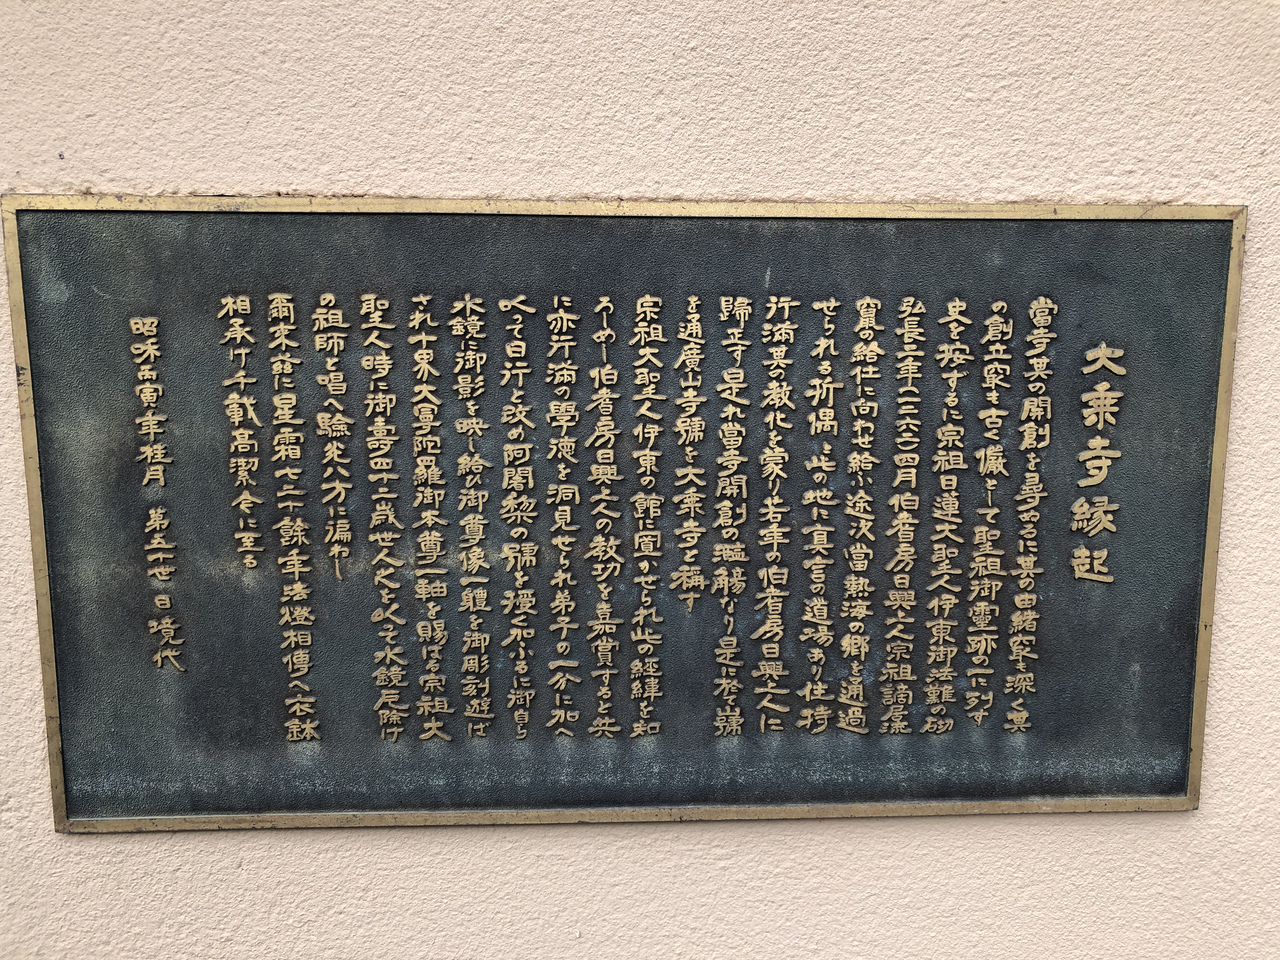 大乗寺縁起
當寺其の開創を尋ぬるに其の由緒寂も深く其
の創立寂も古く儼として聖祖御霊跡の一に列す
史を按ずるに宗祖日蓮大聖人伊東御法難の砌
弘長二年一二六二四月伯耆房日興上人宗祖謫居
竄給仕に向わせ給ふ途次當熱海の郷を通過
せられる折偶〻此の地に真言の道場あり住持
行満其の教化を蒙り若年の伯耆房日興上人に
歸正す是れ當寺開創の濫觴なり是に於て山號
を通廣山寺號を大乗寺と稱す
宗祖大聖人伊東の館に聞かせられ此の經緯を知
ろしめし伯耆房日興上人の教功を嘉賞すると共
に亦行満の學徳を洞見せられ弟子の一分に加へ
以て日行と改め阿闍黎の號を授く加ふるに御自ら
水鏡に御影を映し給ひ御尊像一軆を御彫刻遊ば
され十界大曼陀羅御本尊一軸を賜はる宗祖大
聖人時に御壽四十二歳世人之を以って水鏡厄除け
の祖師と唱へ驗光八方に遍わし
爾来茲に星霜七二十餘年法燈相傳へ衣鉢
相承け千載高潔今に至る
昭和丙寅年桂月 第五十世日境代